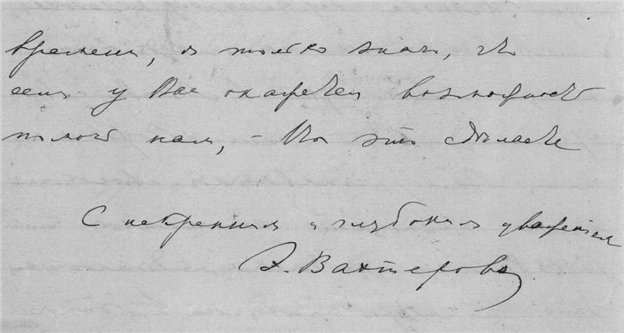 времени, я только знаю, что
если у Вас окажется возможность
помочь нам, – Вы это сделаете
С искренним и глубоким уважением
Э. Вахтерова